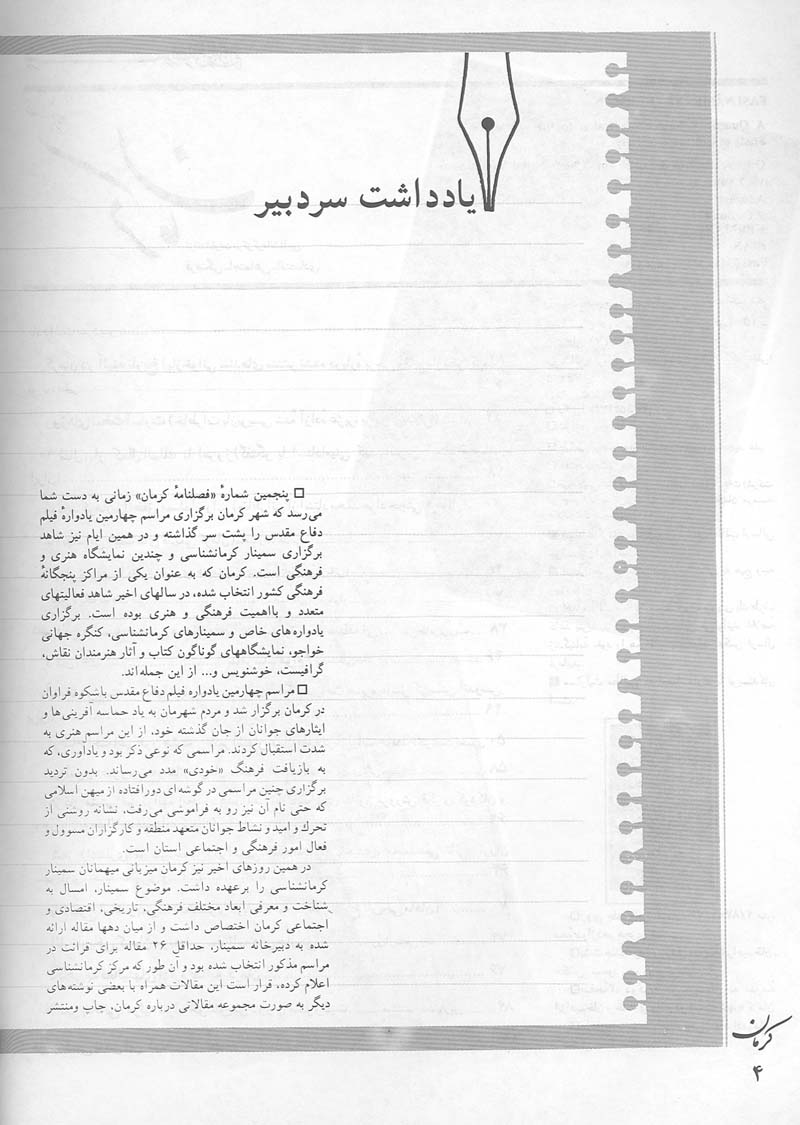 یادداشت سردبیر
□ پنجمین شمارهٔ «فصلنامهٔ کرمان» زمانی به دست شما
می‌رسد که شهر کرمان برگزاری مراسم چهارمین یادوارهٔ فیلم
دفاع مقدس را پشت سر گذاشته و در همین ایام نیز شاهد
برگزاری سمینار کرمانشناسی و چندین نمایشگاه هنری و
فرهنگی است. کرمان که به عنوان یکی از مراکز پنجگانهٔ
فرهنگی کشور انتخاب شده، در سالهای اخیر شاهد فعالیتهای
متعدد و بااهمیت فرهنگی و هنری بوده است. برگزاری
یادواره‌های خاص و سمینارهای کرمانشناسی، کنگره جهانی
خواجو، نمایشگاههای گوناگون کتاب و آثار هنرمندان نقاش،
گرافیست، خوشنویس و... از این جمله‌اند.
□ مراسم چهارمین یادواره فیلم دفاع مقدس باشکوه فراوان
در کرمان برگزار شد و مردم شهرمان به یاد حماسه آفرینی‌ها و
ایثارهای جوانان از جان گذشته خود، از این مراسم هنری به
شدت استقبال کردند. مراسمی که نوعی ذکر بود و یادآوری، که
به بازیافت فرهنگ «خودی» مدد می‌رساند. بدون تردید
برگزاری چنین مراسمی در گوشه ای دورافتاده از میهن اسلامی
که حتی نام آن نیز رو به فراموشی می‌رفت، نشانه روشنی از
تحرك و امید و نشاط جوانان متعهد منطقه و کارگزاران مسوول و
فعال امور فرهنگی و اجتماعی استان است.
در همین روزهای اخیر نیز کرمان میزبانی میهمانان سمینار
کرمانشناسی را برعهده داشت. موضوع سمینار، امسال به
شناخت و معرفی ابعاد مختلف فرهنگی، تاریخی، اقتصادی و
اجتماعی کرمان اختصاص داشت و از میان دهها مقاله ارائه
شده به دبیرخانه سمینار، حداقل ۲۶ مقاله برای قرائت در
مراسم مذکور انتخاب شده بود و آن طور که مرکز کرمانشناسی
اعلام کرده، قرار است این مقالات همراه با بعضی نوشته‌های
دیگر به صورت مجموعه مقالاتی درباره کرمان، چاپ ومنتشر
کرمان
۴